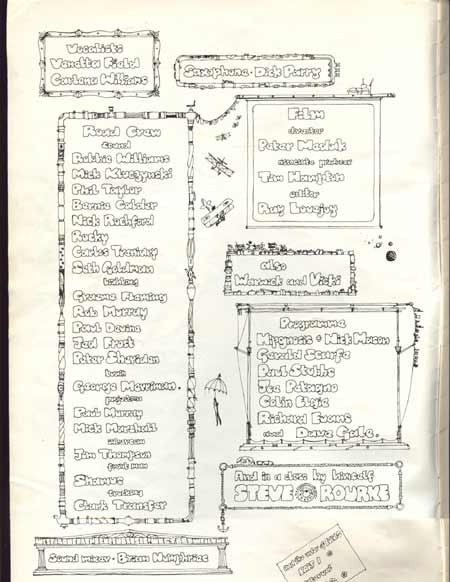 Vocalists
Vanetta Field
Carlena Williams
Saxophone · Dick Parry
Road Crew
sound
Robbie Williams
Mick Kluczynski
Phil Taylor
Bernie Calder
Nick Rochford
Rocky
Carlos Traniday
Seth Goldman
building
Graeme Fleming
Rob Murray
Paul Devine
Jed Frost
Peter Sheridan
George Merriman.
projection
Paul Murray
Mick Marshall
Jim Thompson
Shamus
trucking
Clark Transfer
Film
director
Peter Medak
associate producer
Tim Hampton
editor
Ray Lovejoy
also
Warwick and Vicki
Programme
Hipgnosis + Nick Mason
Gerald Scarfe
Paul Stubbs
Joe Petagno
Colin Elgie
Richard Evans
and Dave Gale.
And in a class by himself
STEVE O'ROURKE
Sound mixer · Brian Humphries